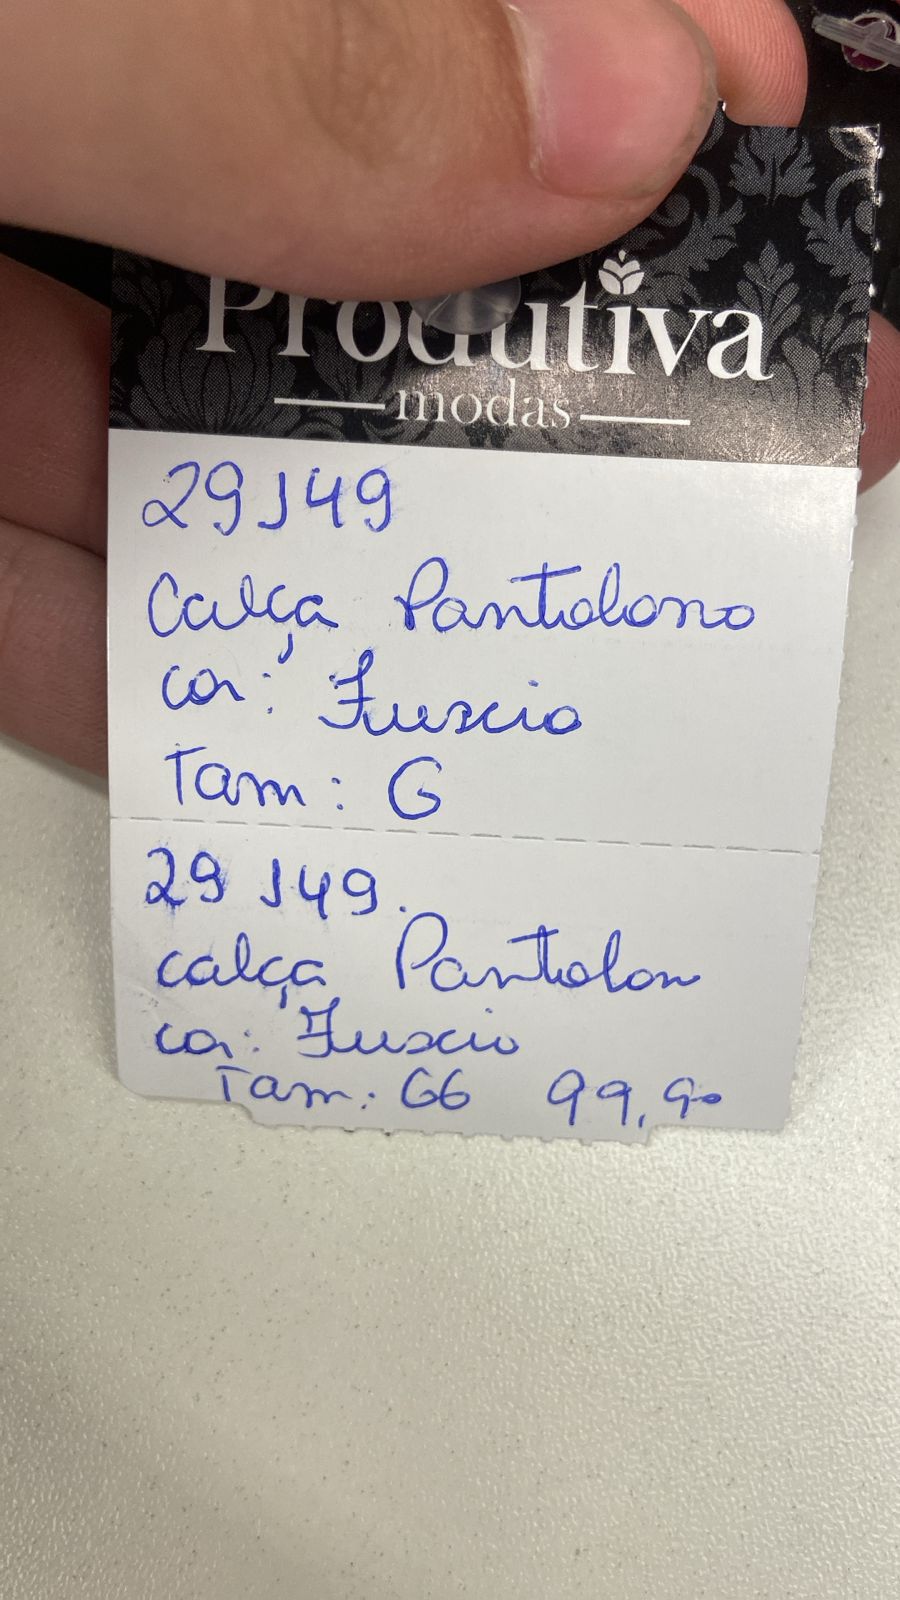 Produtiva
modas
29149
Calça Pantalona
cor: Fuscia
Tam: G
29 149.
calça Pantalon
cor: Fuscia
Tam: GG 99,90